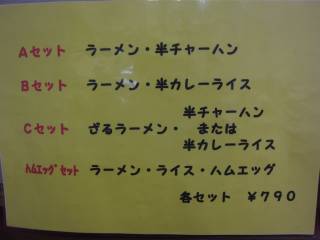 Aセット ラーメン・半チャーハン
Bセット ラーメン・半カレーライス
半チャーハン
Cセット ざるラーメン・ または
半カレーライス
ハムエッグセット ラーメン・ライス・ハムエッグ
各セット ¥790